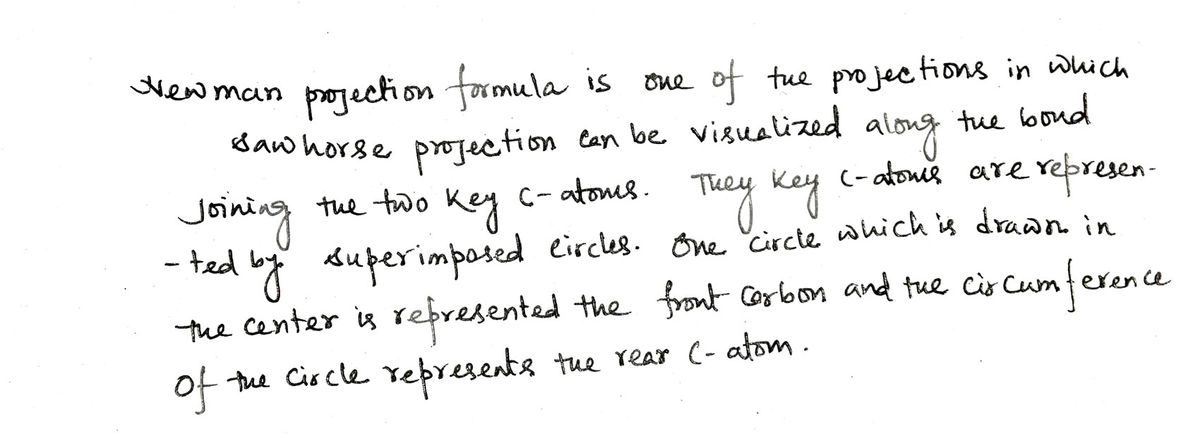 Newman projection formula is one of the projections in which
sawhorse projection can be visualized along the bond
Joining the two key C-atoms. They key C-atoms are represen-
-ted by superimposed circles. One circle which is drawn in
the center is represented the front carbon and the circumference
Of the circle represents the rear C-atom.